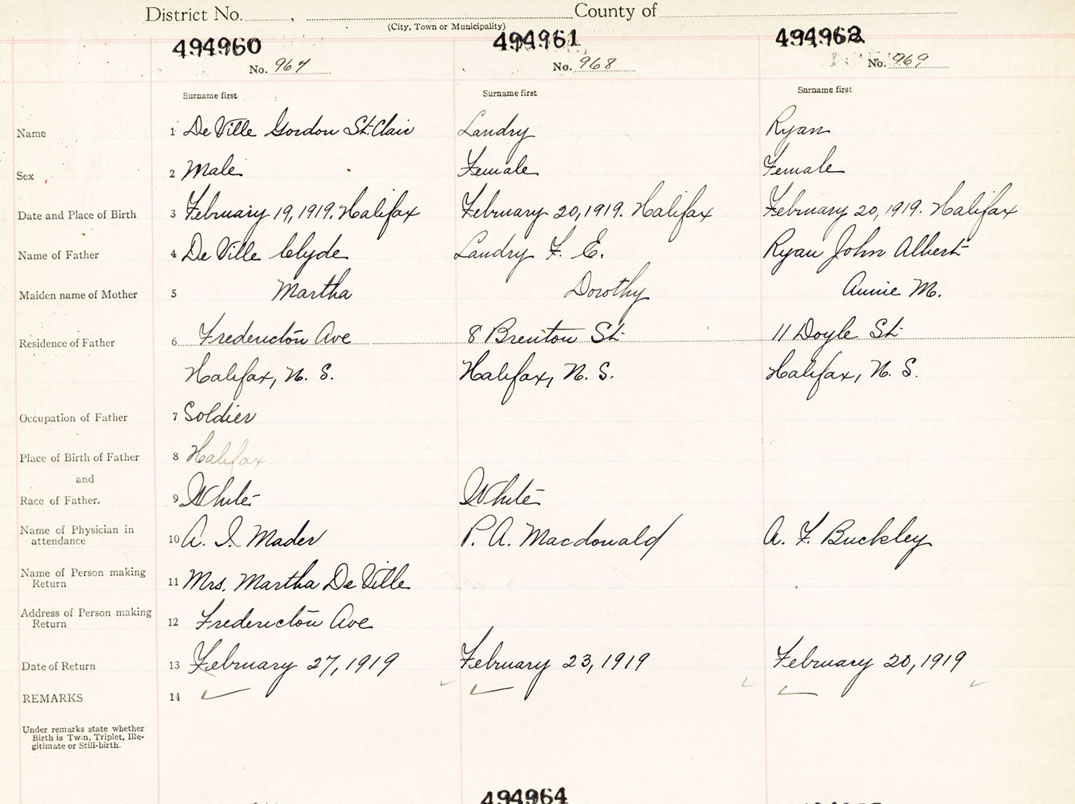 District No. County of
(City, Town or Municipality)
494960 494961 494962
No. 967 No. 968 No. 969
Surname first Surname first Surname first
Name 1 De Ville Gordon St. Clair Landry Ryan
Sex 2 Male Female Female
Date and Place of Birth 3 February 19, 1919. Halifax February 20, 1919. Halifax February 20, 1919. Halifax
Name of Father 4 De Ville Clyde Landry F. E. Ryan John Albert
Maiden name of Mother 5 Martha Dorothy Annie M.
Residence of Father 6 Fredericton Ave 8 Brenton St. 11 Doyle St.
Halifax, N. S. Halifax, N. S. Halifax, N. S.
Occupation of Father 7 Soldier
Place of Birth of Father 8 Halifax
and
Race of Father. 9 White White
Name of Physician in attendance 10 A. I. Mader P. A. Macdonald A. F. Buckley
Name of Person making Return 11 Mrs. Martha De Ville
Address of Person making Return 12 Fredericton Ave
Date of Return 13 February 27, 1919 February 23, 1919 February 20, 1919
REMARKS 14
Under remarks state whether
Birth is Twin, Triplet, Ille-
gitimate or Still-birth.
494964